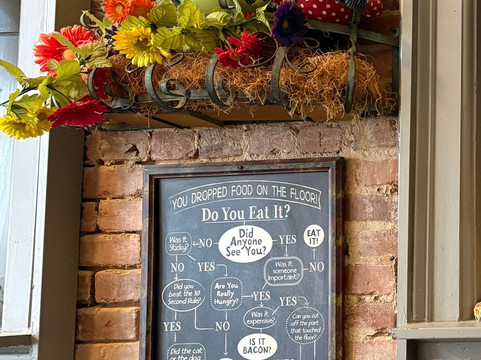 YOU DROPPED FOOD ON THE FLOOR!
Do You Eat It?
Did
Anyone
See You?
Was It
Sticky?
NO
YES
EAT
IT!
NO
YES
Was it
someone
Important?
NO
Did you
beat the 10
Second Rule?
Are You
Really
Hungry?
YES
YES
Was it
expensive?
Can you cut
off the part
that touched
the floor?
YES
NO
IS IT
BACON?
Did the cat
or the dog